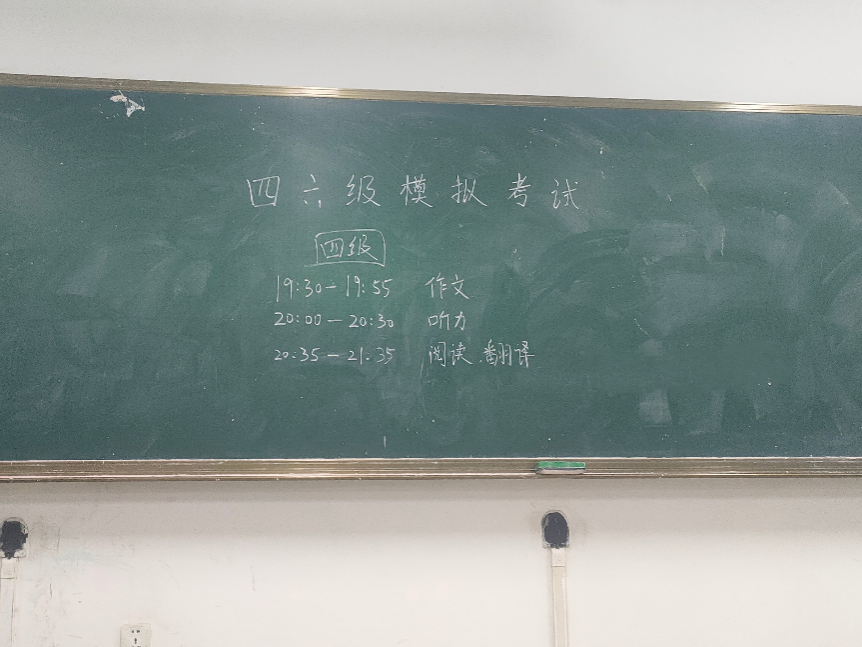 四六级模拟考试
四级
19:30-19:55 作文
20:00-20:30 听力
20.35-21.35 阅读、翻译